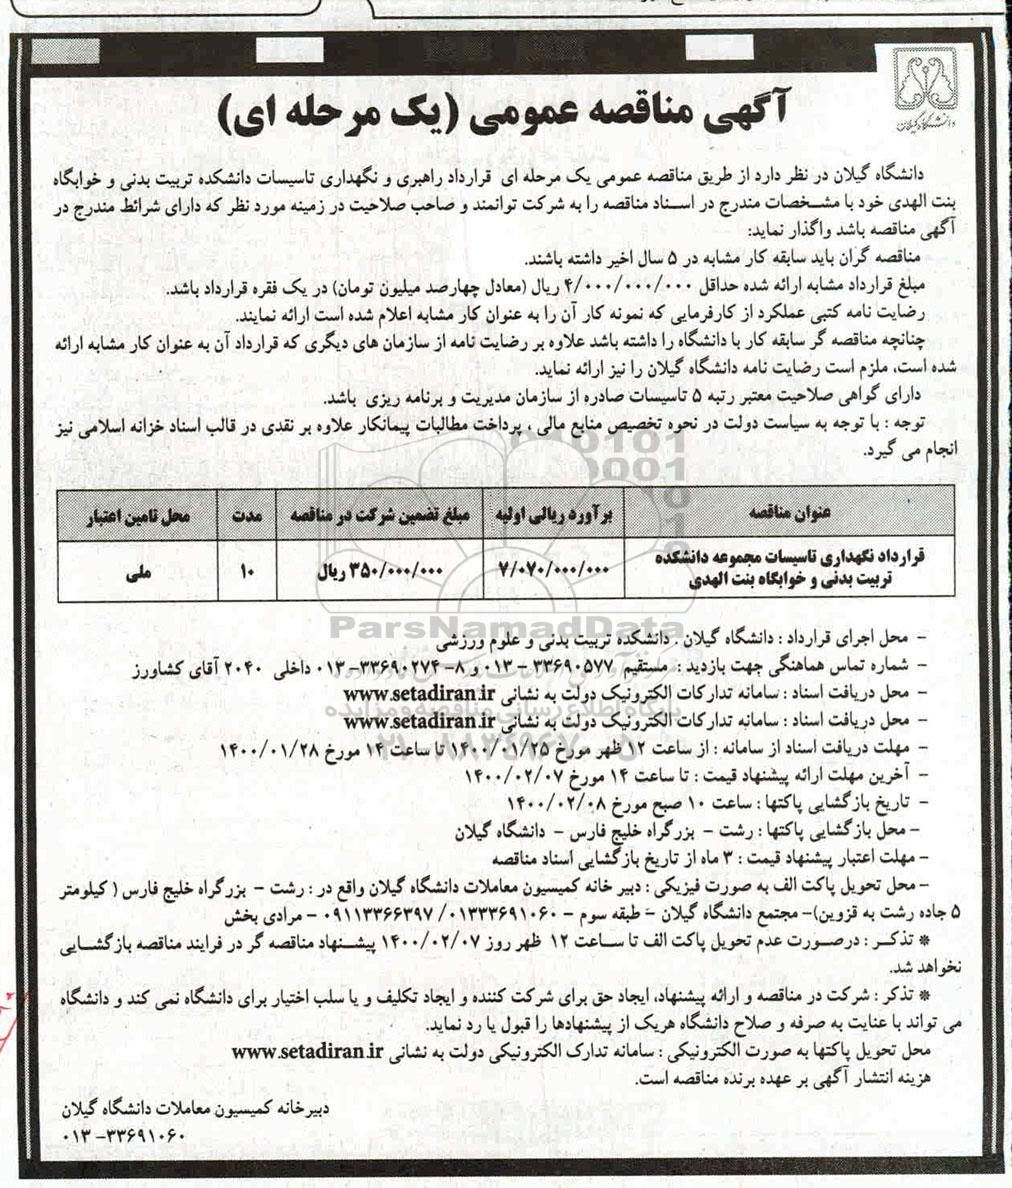 دانشگاه گیلان
آگهی مناقصه عمومی (یک مرحله ای)
دانشگاه گیلان در نظر دارد از طریق مناقصه عمومی یک مرحله ای قرارداد راهبری و نگهداری تاسیسات دانشکده تربیت بدنی و خوابگاه
بنت الهدی خود با مشخصات مندرج در اسناد مناقصه را به شرکت توانمند و صاحب صلاحیت در زمینه مورد نظر که دارای شرائط مندرج در
آگهی مناقصه باشد واگذار نماید:
مناقصه گران باید سابقه کار مشابه در ۵ سال اخیر داشته باشند.
مبلغ قرارداد مشابه ارائه شده حداقل ۴/۰۰۰/۰۰۰/۰۰۰ ریال (معادل چهارصد میلیون تومان) در یک فقره قرارداد باشد.
رضایت نامه کتبی عملکرد از کارفرمایی که نمونه کار آن را به عنوان کار مشابه اعلام شده است ارائه نمایند.
چنانچه مناقصه گر سابقه کار با دانشگاه را داشته باشد علاوه بر رضایت نامه از سازمان های دیگری که قرارداد آن به عنوان کار مشابه ارائه
شده است، ملزم است رضایت نامه دانشگاه گیلان را نیز ارائه نماید.
دارای گواهی صلاحیت معتبر رتبه ۵ تاسیسات صادره از سازمان مدیریت و برنامه ریزی باشد.
توجه : با توجه به سیاست دولت در نحوه تخصیص منابع مالی ، پرداخت مطالبات پیمانکار علاوه بر نقدی در قالب اسناد خزانه اسلامی نیز
انجام می گیرد.
عنوان مناقصه برآورد ریالی اولیه مبلغ تضمین شرکت در مناقصه مدت محل تامین اعتبار
قرارداد نگهداری تاسیسات مجموعه دانشکده
تربیت بدنی و خوابگاه بنت الهدی ۷/۰۷۰/۰۰۰/۰۰۰ ۳۵۰/۰۰۰/۰۰۰ ریال ۱۰ ملی
ParsNamadData
پایگاه اطلاع رسانی مناقصه و مزایده
- محل اجرای قرارداد : دانشگاه گیلان . دانشکده تربیت بدنی و علوم ورزشی
- شماره تماس هماهنگی جهت بازدید : مستقیم ۳۳۶۹۰۵۷۷ - ۰۱۳ و ۸-۳۳۶۹۰۲۷۴-۰۱۳ داخلی ۲۰۴۰ آقای کشاورز
- محل دریافت اسناد : سامانه تدارکات الکترونیک دولت به نشانی www.setadiran.ir
- محل دریافت اسناد : سامانه تدارکات الکترونیک دولت به نشانی www.setadiran.ir
- مهلت دریافت اسناد از سامانه : از ساعت ۱۲ ظهر مورخ ۱۴۰۰/۰۱/۲۵ تا ساعت ۱۴ مورخ ۱۴۰۰/۰۱/۲۸
- آخرین مهلت ارائه پیشنهاد قیمت : تا ساعت ۱۴ مورخ ۱۴۰۰/۰۲/۰۷
- تاریخ بازگشایی پاکتها : ساعت ۱۰ صبح مورخ ۱۴۰۰/۰۲/۰۸
- محل بازگشایی پاکتها : رشت - بزرگراه خلیج فارس - دانشگاه گیلان
- مهلت اعتبار پیشنهاد قیمت : ۳ ماه از تاریخ بازگشایی اسناد مناقصه
- محل تحویل پاکت الف به صورت فیزیکی : دبیر خانه کمیسیون معاملات دانشگاه گیلان واقع در : رشت - بزرگراه خلیج فارس ( کیلومتر
۵ جاده رشت به قزوین)- مجتمع دانشگاه گیلان - طبقه سوم - ۰۱۳۳۳۶۹۱۰۶۰/ ۰۹۱۱۳۳۶۶۳۹۷ - مرادی بخش
* تذکر : درصورت عدم تحویل پاکت الف تا ساعت ۱۲ ظهر روز ۱۴۰۰/۰۲/۰۷ پیشنهاد مناقصه گر در فرایند مناقصه بازگشایی
نخواهد شد.
* تذکر : شرکت در مناقصه و ارائه پیشنهاد، ایجاد حق برای شرکت کننده و ایجاد تکلیف و یا سلب اختیار برای دانشگاه نمی کند و دانشگاه
می تواند با عنایت به صرفه و صلاح دانشگاه هریک از پیشنهادها را قبول یا رد نماید.
محل تحویل پاکتها به صورت الکترونیکی : سامانه تدارک الکترونیکی دولت به نشانی www.setadiran.ir
هزینه انتشار آگهی بر عهده برنده مناقصه است.
دبیرخانه کمیسیون معاملات دانشگاه گیلان
۰۱۳-۳۳۶۹۱۰۶۰